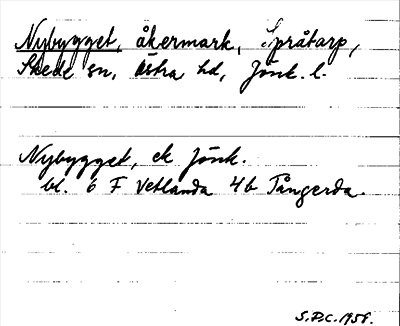 Nybygget, åkermark, Språtarp,
Skede sn, Östra hd, Jönk. l.
Nybygget, ek Jönk.
bl. 6 F Vetlanda 4b Tångerda.
S.D.C. 1958.